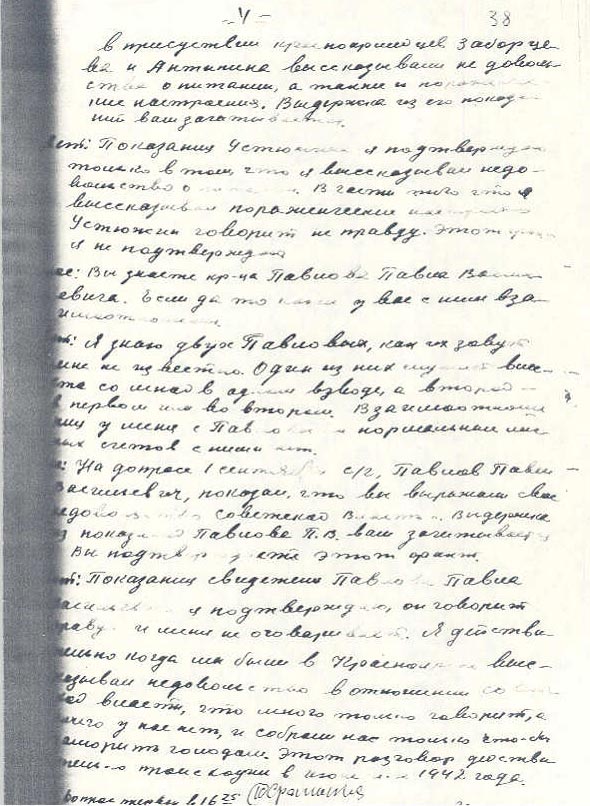 -4-
38
в присуствии красноармейцев Заборце-
ва и Антипина высказывали не доволь-
ства о питании, а также и пораженче-
ские настроения. Выдержка из его показа-
ний вам зачитывается.
Показания Устюжина я подтверждаю
только в том, что я высказывал недо-
вольство о питании. В части того что я
высказывал пораженческие
Устюжин говорит не правду. Этот
я не подтверждаю
Вы знаете кр-ца Павлова Павла Васил-
евича. Если да то какие у вас с ним вза-
имоотношения.
Я знаю двух Павловых, как их зовут
мне не известно. Один из них служит вме-
сте со мной в одном взводе, а второй -
в первом или во втором. Взаимоотноше
ния у меня с Павловыми нормальные лич
ных счетов с ними нет.
На допросе 1 сентября с/г, Павлов Павел -
Васильевич, показал, что вы выражали свое
недовольство советской власти. Выдержка
из показаний Павлова П.В. вам зачитывается
Вы подтверждаете этот факт.
Показания свидетеля Павлова Павла
Васильевича я подтверждаю, он говорит
правду и меня не оговаривает. Я действи-
тельно когда мы были в Красноярске выс-
казывал недовольство в отношении совет
ской власти, что много только говорит, а
ничего у нас нет, и собрали нас только что-бы
заморить голодом. Этот разговор действи
тельно происходил в 1942 года.
в 16 25